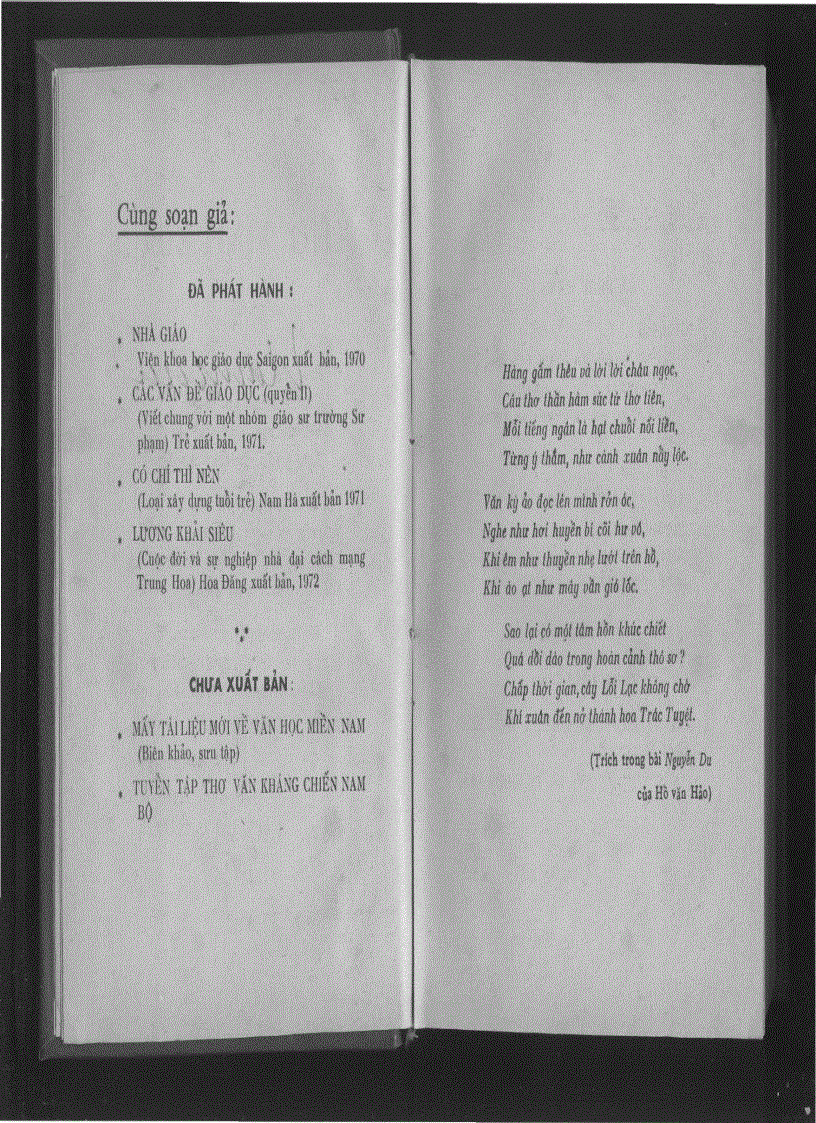 Cùng soạn giả:
ĐÃ PHÁT HÀNH :
NHÀ GIÁO
Viện khoa học giáo dục Saigon xuất bản, 1970
CÁC VẤN ĐỀ GIÁO DỤC (quyển II)
(Viết chung với một nhóm giáo sư trường Sư
phạm) Trẻ xuất bản, 1971.
CÓ CHÍ THÌ NÊN
(Loại xây dựng tuổi trẻ) Nam Hà xuất bản 1971
LƯƠNG KHẢI SIÊU
(Cuộc đời và sự nghiệp nhà đại cách mạng
Trung Hoa) Hoa Đăng xuất bản, 1972
CHƯA XUẤT BẢN :
MẤY TÀI LIỆU MỚI VỀ VĂN HỌC MIỀN NAM
(Biên khảo, sưu tập)
TUYỂN TẬP THƠ VĂN KHÁNG CHIẾN NAM
BỘ
Hàng gấm thêu và lời lời châu ngọc,
Câu thơ thần hàm súc tứ thơ tiên,
Mỗi tiếng ngân là hạt chuỗi nối liền,
Từng ý thắm, như cành xuân nẩy lộc.
Văn kỳ ảo đọc lên mình rởn óc,
Nghe như hơi huyền bí cõi hư vô,
Khi êm như thuyền nhẹ lướt trên hồ,
Khi ào ạt như mây vần gió lốc.
Sao lại có một tâm hồn khúc chiết
Quá dồi dào trong hoàn cảnh thô sơ ?
Chấp thời gian, cây Lỗi Lạc không chờ
Khi xuân đến nở thành hoa Trác Tuyệt.
(Trích trong bài Nguyễn Du
của Hồ văn Hảo)